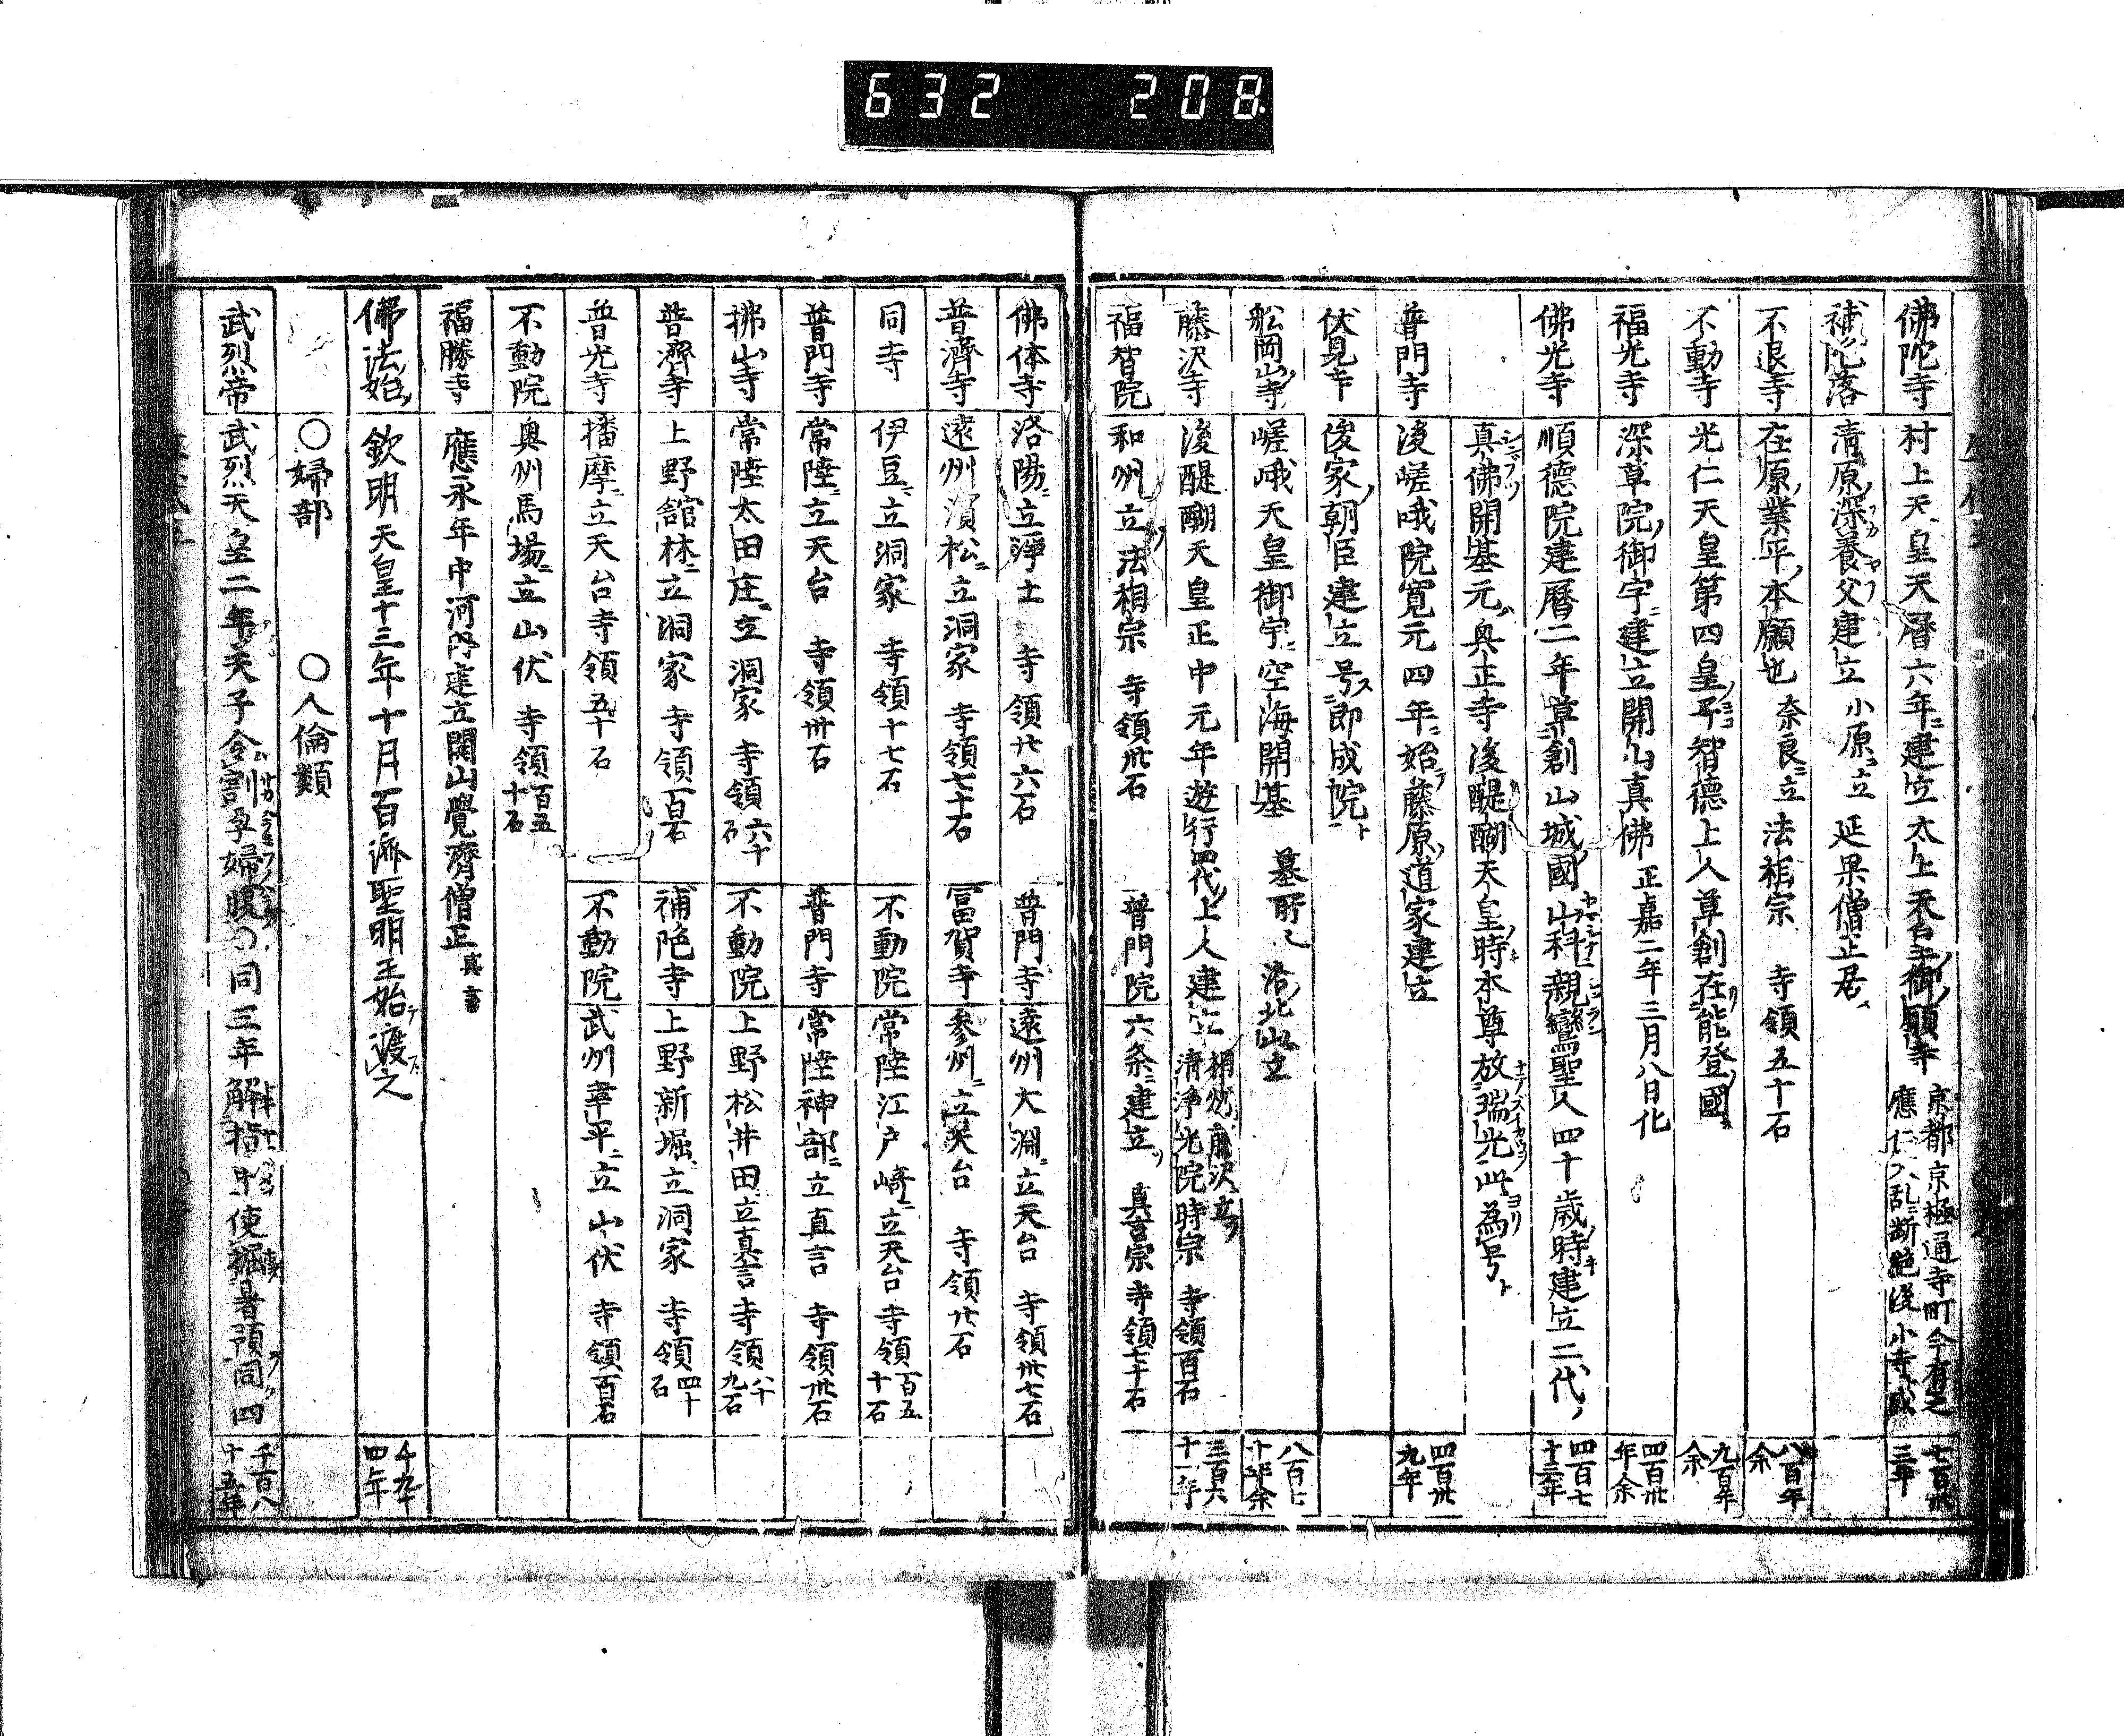 632 208
佛陀寺 村上天皇天曆六年ニ建立太上天皇ノ御願寺 京都京極通寺町今有之 應仁ノ乱ニ断絶後小寺成 七百卅三年
補陀落 清原ノ深養父建立 小原ニ立 延果僧正居
不退寺 在原ノ業平ノ本願也 奈良ニ立 法相宗 寺領五十石 八百年余
不動寺 光仁天皇第四皇子智德上人草創在能登國 九百年余
福光寺 深草院ノ御宇ニ建立開山真佛 正嘉二年三月八日化 四百卅年余
佛光寺 順德院建曆二年草創山城ノ國山科親鸞聖人四十歲時建立二代ノ 四百七十三年
真佛開基元ハ奥正寺後醍醐天皇時本尊放瑞光此為号ト
普門寺 後嵯峨院寛元四年ニ始テ藤原ノ道家建立 四百卅九年
伏見寺 俊家ノ朝臣建立号ス即成院ト
舩岡山寺 嵯峨天皇御宇ニ空海開基 墓所 洛北山立 八百七十年余
藤沢寺 後醍醐天皇正中元年遊行四代上人建立 相州藤沢立 清浄光院時宗 寺領百石 三百六十一年
福智院 和州ノ立法相宗 寺領卅石 普門院 六条ニ建立 真言宗 寺領七十石
佛体寺 洛陽ニ立淨土 寺領廿六石 普門寺 遠州大淵ニ立天台 寺領卅七石
普濟寺 遠州濱松ニ立洞家 寺領七十石 冨賀寺 參州ニ立天台 寺領廿石
同寺 伊豆ニ立洞家 寺領十七石 不動院 常陸江戸崎ニ立天台 寺領百五十石
普門寺 常陸ニ立天台 寺領卅石 普門寺 常陸神部ニ立真言 寺領卅石
拂山寺 常陸太田庄ニ立洞家 寺領六十石 不動院 上野松井田立真言 寺領八十九石
普濟寺 上野舘林ニ立洞家 寺領百石 補陀寺 上野新堀立洞家 寺領四十石
普光寺 播摩ニ立天台寺領五十石 不動院 武州幸平ニ立山伏 寺領百石
不動院 奥州馬場ニ立山伏 寺領百五十石
福勝寺 應永年中河内建立開山覺濟僧正 真言
佛法始 欽明天皇十三年十月百濟聖明王始テ渡ス之 千九十四年
〇婦部 〇人倫類
武烈帝 武烈天皇二年天子令割孕婦腹〇同三年解指甲使掘暑預同四 千百八十五年